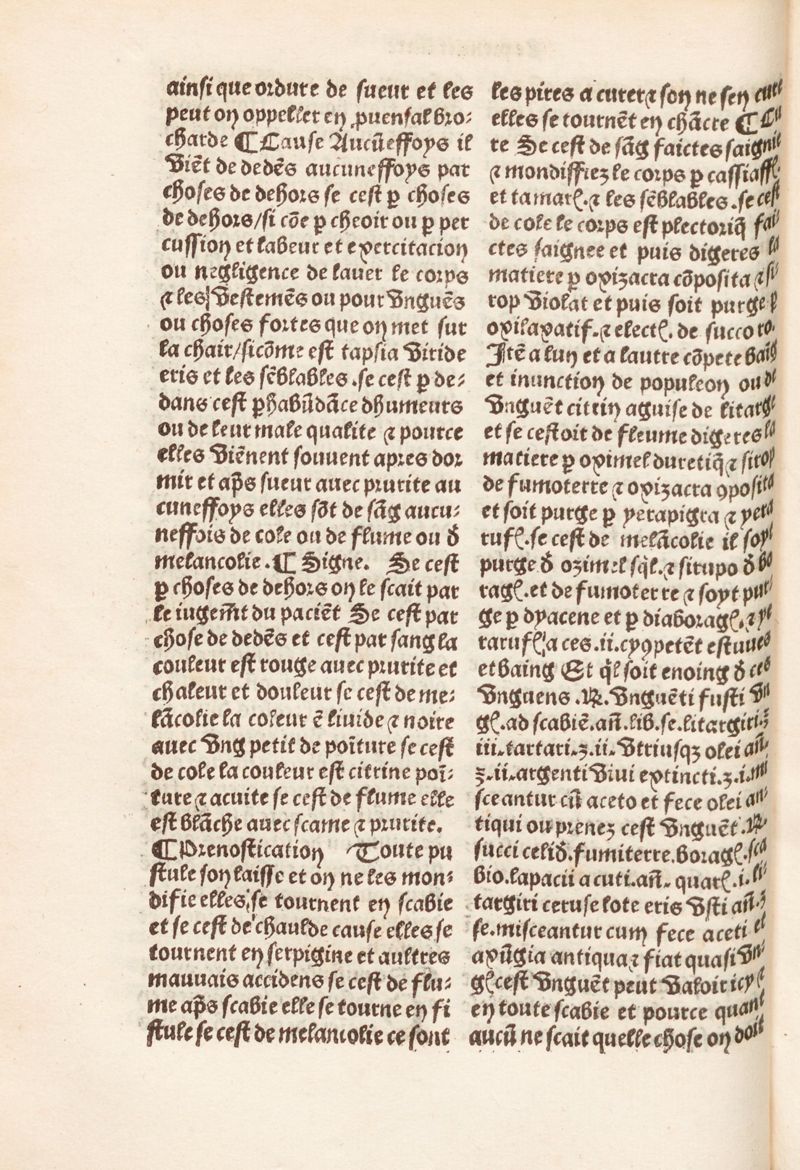 ainsi que ordure de sueur et les
peut on oppeller en ꝓuensal bro⸗
charde ¶ Cause Aucũeffoys il
viẽt de dedẽs aucuneffoys par
choses de dehors se cest ꝑ choses
de dehors/si cõe ꝑ cheoir ou ꝑ per
cussion et labeur et exercitacion
ou negligence de lauer le corps
⁊ les vestemẽs ou pour vnguẽs
ou choses fortes que on met sur
la chair/sicõme est tapsia viride
eris et les sẽblables .se cest ꝑ de⸗
dans cest ꝑhabũdãce dhumeurs
ou de leur male qualite ⁊ pource
elles viẽnent souuent apres dor
mir et ap̃s sueur auec prurite au
cuneffoys elles sõt de sãg aucu⸗
neffois de cole ou de flume ou d̃
melancolie .¶ Signe. Se cest
ꝑ choses de dehors on le scait par
le iugem̃t du paciẽt Se cest par
chose de dedẽs et cest par sang la
couleur est rouge auec prurite et
chaleur et douleur se cest de me⸗
lãcolie la coleur ẽ liuide ⁊ noire
auec vng petit de poĩture se cest
de cole la couleur est citrine poĩ⸗
ture ⁊ acuite se cest de flume elle
est blãche auec scame ⁊ prurite.
¶ Prenostication Toute pu
stule son laisse et on ne les mon⸗
difie elles se tournent en scabie
et se cest de chaulde cause elles se
tournent en serpigine et aultres
mauuais accidens se cest de flu⸗
me ap̃s scabie elle se tourne en fi
stule se cest de melancolie ce sont
les pires a curer ⁊ son ne sen cure
elles se tournẽt en chãcre ¶ Cu
re Se cest de sãg faictes saignie
⁊ mondiffiez le corps ꝑ cassiaff.
et tamar. ⁊ les sẽblables .se cest
de cole le corps est plectoriq̃ fai
ctes saignee et puis digeres la
matiere ꝑ oxizacra cõposita ⁊ si
rop violat et puis soit purge ꝑ
oxilaxatif. ⁊ elect. de succo ro.
Itẽ a lun et a lautre cõpete baig
et inunction de populeon ou de
vnguẽt citrin aguise de litarg.
et se cestoit de fleume digeres la
matiere ꝑ oximel duretiq̃ ⁊ sirop
de fumoterre ⁊ oxizacra ꝯposita
et soit purge ꝑ yerapigra ⁊ yera
ruf. .se cest de melãcolie il soyt
purge d̃ ozimel sql̃. ⁊ sirupo d̃ bo
rag. et de fumoterre ⁊ soyt pur
ge ꝑ dyacene et ꝑ diaborag. ⁊ ye
raruf. a ces .ii. cy ꝯpetẽt estuues
et baing Et ql̃ soit enoing d̃ ces
vnguens .℞. vnguẽti fusti vn
g. ad scabiẽ .añ. lib. se. litargiri.ʒ
iii. tartari.ʒ.ii. vtriusqꝫ olei añ.
ʒ.ii. argenti viui extincti.ʒ.i. mi
sceantur cũ aceto et fece olei an
tiqui ou prenez cest vnguẽt .℞.
succi celid̃. fumiterre. borag. sca
bio. lapacii acuti. añ. quar. i. li
targiri ceruse lote eris vsti añ.ʒ
se. misceantur cum fece aceti et
axũgia antiqua ⁊ fiat quasi vn
g. cest vnguẽt peut valoir icy et
en toute scabie et pource quant
aucũ ne scait quelle chose on doit